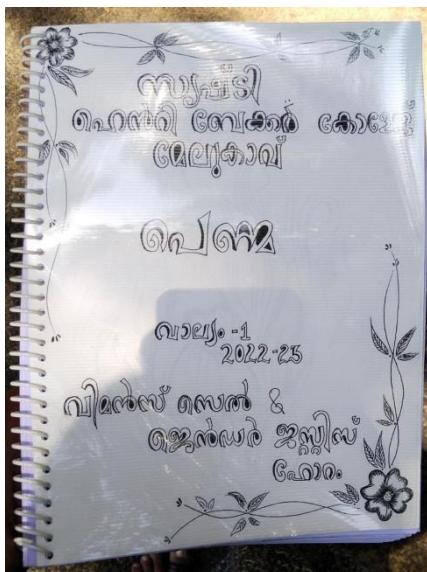 സൃഷ്ടി
ഹെൻറി ബേക്കർ കോളേജ്
മേലുകാവ്
പെണ്മ
വാല്യം -1
2022-23
വിമൻസ് സെൽ &
ജെൻഡർ ജസ്റ്റിസ്
ഫോറം